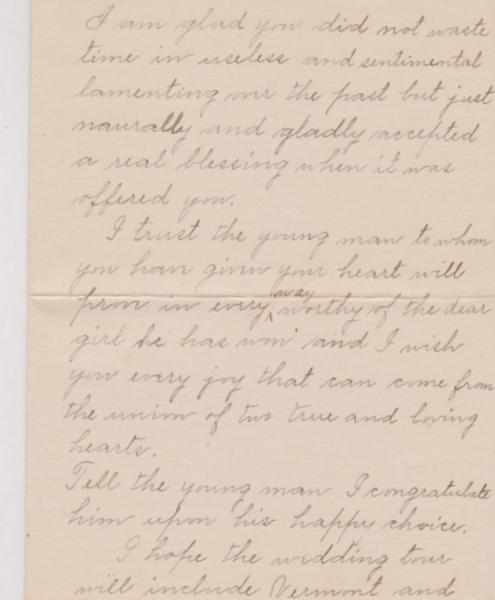 I am glad you did not waste
time in useless and sentimental
lamenting over the past but just
naurally and gladly accepted
a real blessing when it was
offered you.
I trust the young man to whom
you have given your heart will
prove in every way worthy of the dear
girl he has won and I wish
you every joy that can come from
the union of two true and loving
hearts.
Tell the young man I congratulate
him upon his happy choice.
I hope the wedding tour
will include Vermont and